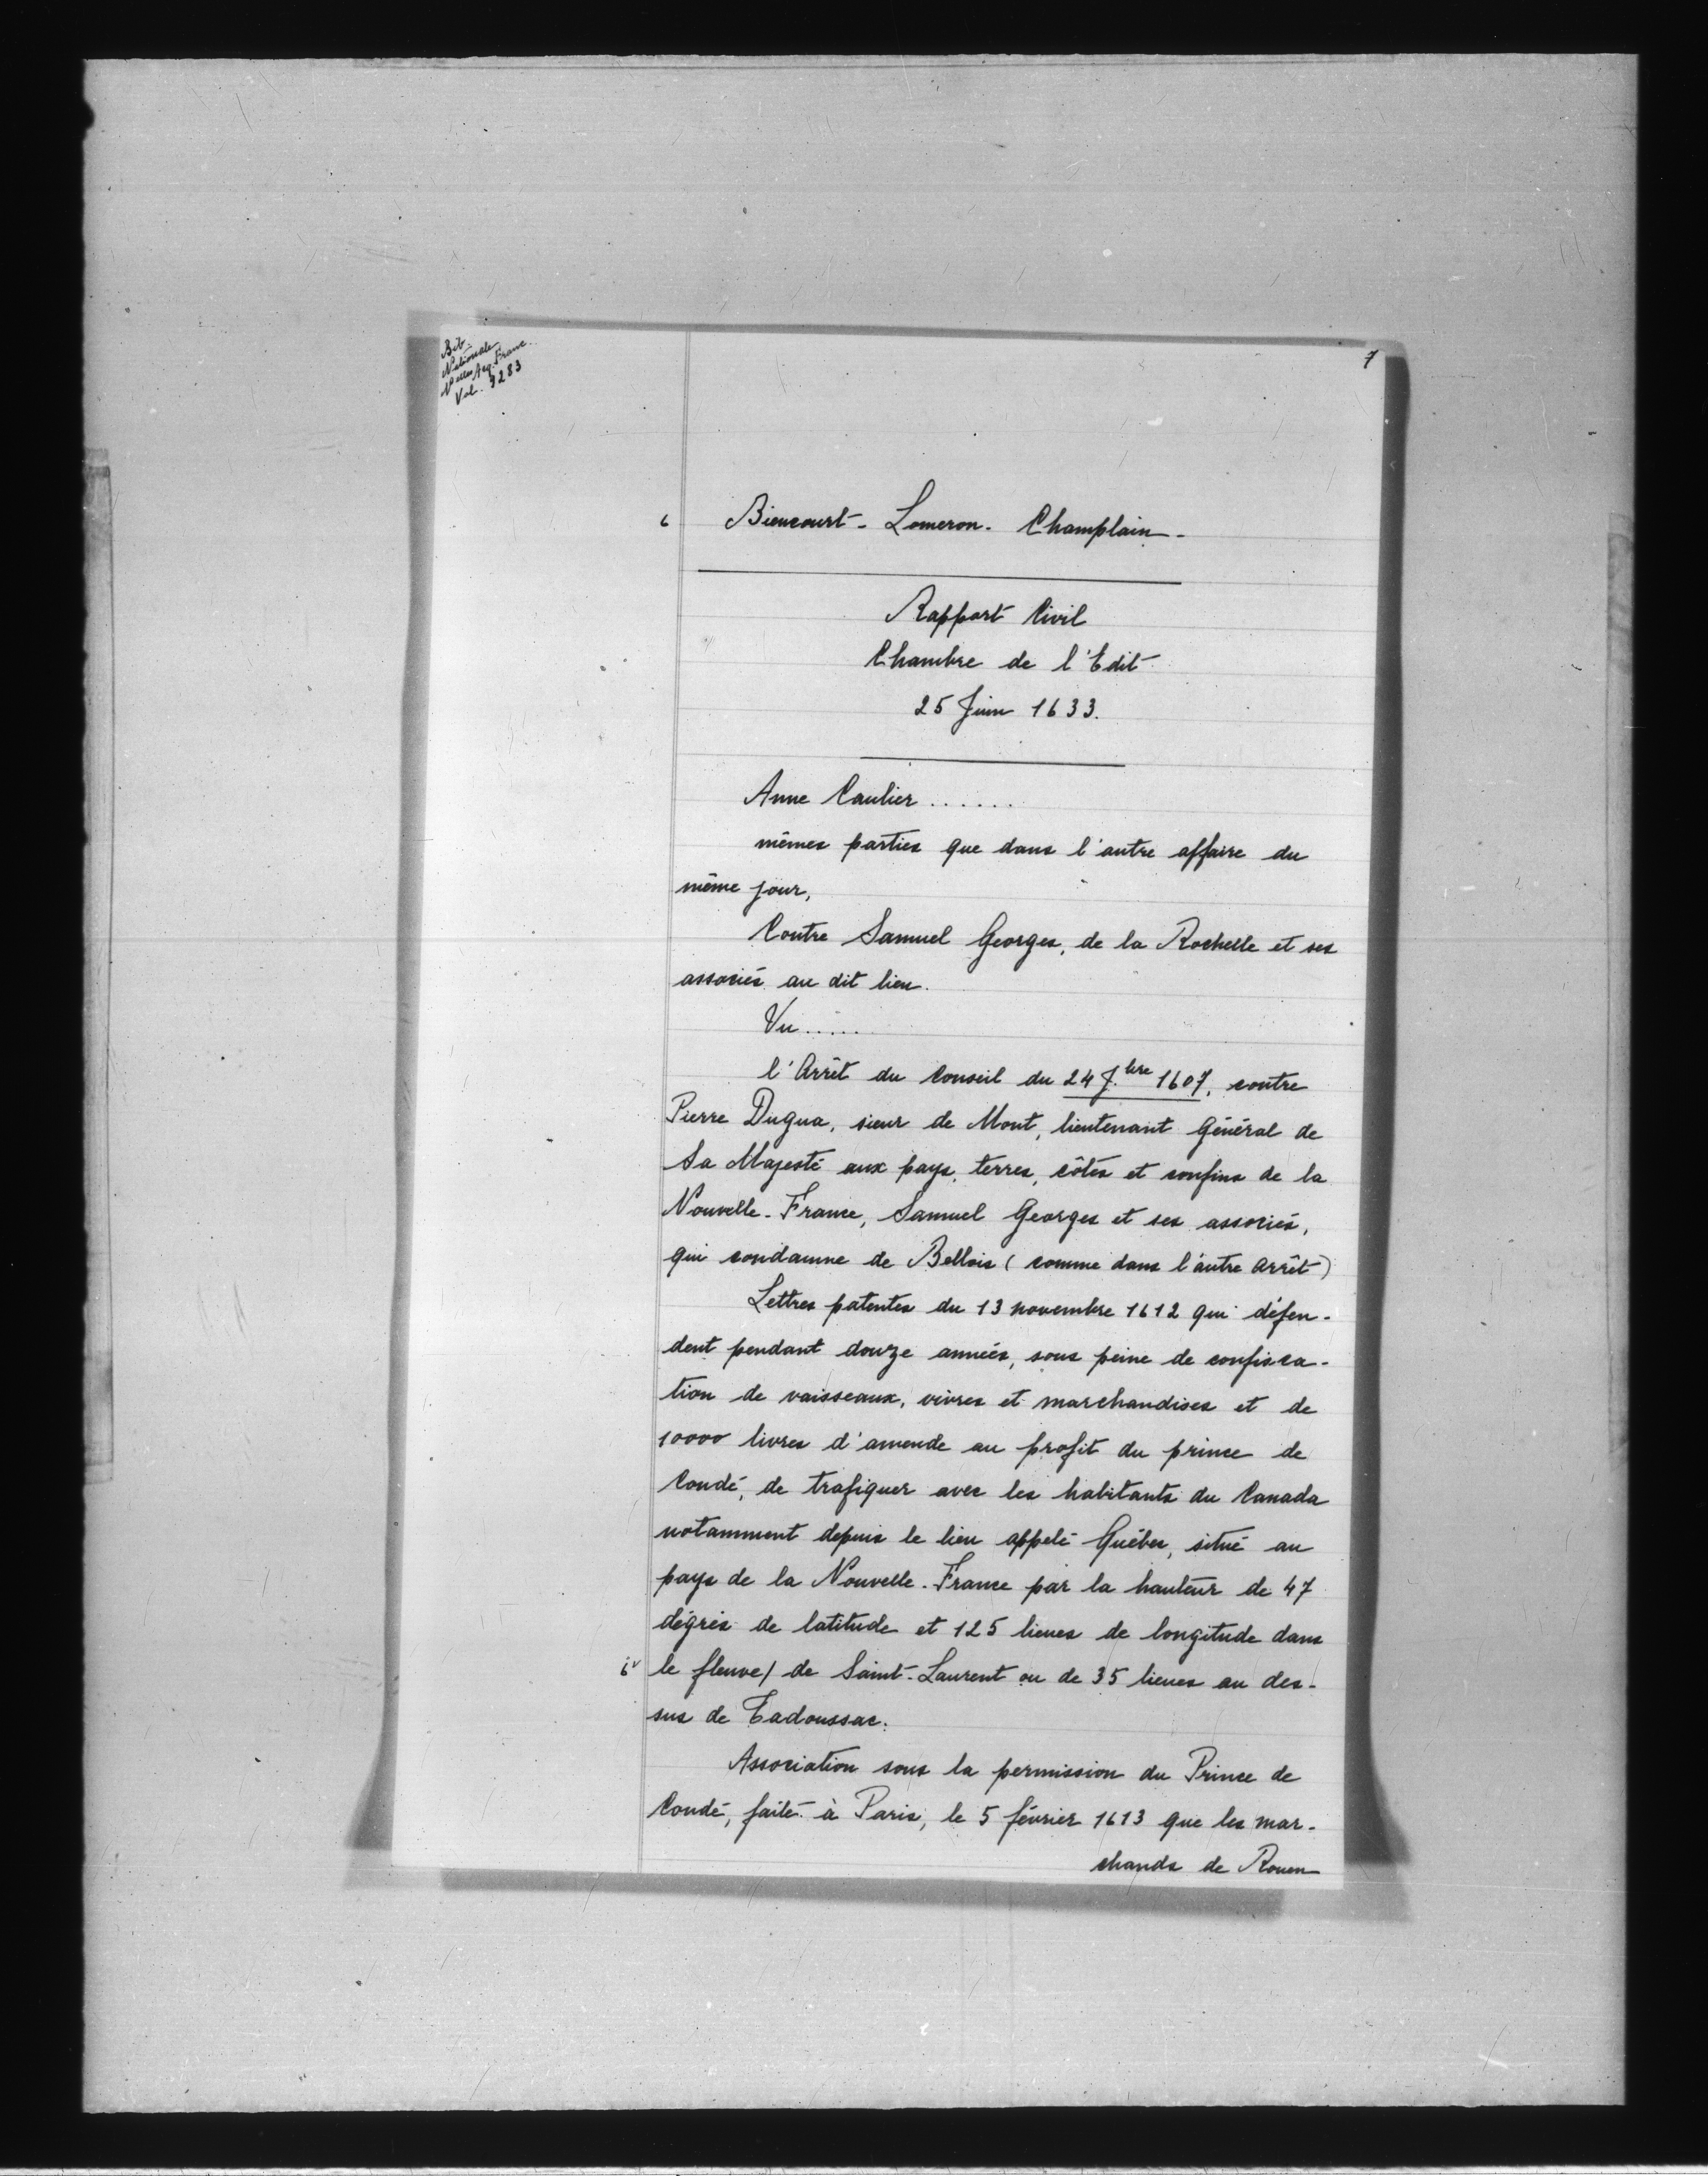 Bib.
Nationale
Nelles Acq. Franc.
Vol. 9283
7
6 Biencourt - Lomeron - Champlain -
Rapport Civil
Chambre de l'Edit
25 Juin 1633.
Anne Caulier ......
mêmes parties que dans l'autre affaire du
même jour,
Contre Samuel Georges, de la Rochelle et ses
associés au dit lieu.
Vu .....
l'Arrêt du Conseil du 24 7.bre 1607, contre
Pierre Dugua, sieur de Mont, lieutenant Général de
Sa Majesté aux pays, terres, côtes et confins de la
Nouvelle-France, Samuel Georges et ses associés,
qui condamne de Bellois (comme dans l'autre Arrêt)
Lettres patentes du 13 novembre 1612 qui défen-
dent pendant douze années, sous peine de confisca-
tion de vaisseaux, vivres et marchandises et de
10000 livres d'amende au profit du prince de
Condé, de trafiquer avec les habitants du Canada
notamment depuis le lieu appelé Québec, situé au
pays de la Nouvelle-France par la hauteur de 47
dégrés de latitude et 125 lieues de longitude dans
6v le fleuve/ de Saint-Laurent ou de 35 lieues au des-
sus de Tadoussac.
Association sous la permission du Prince de
Condé, faite à Paris, le 5 février 1613 que les mar-
chands de Rouen